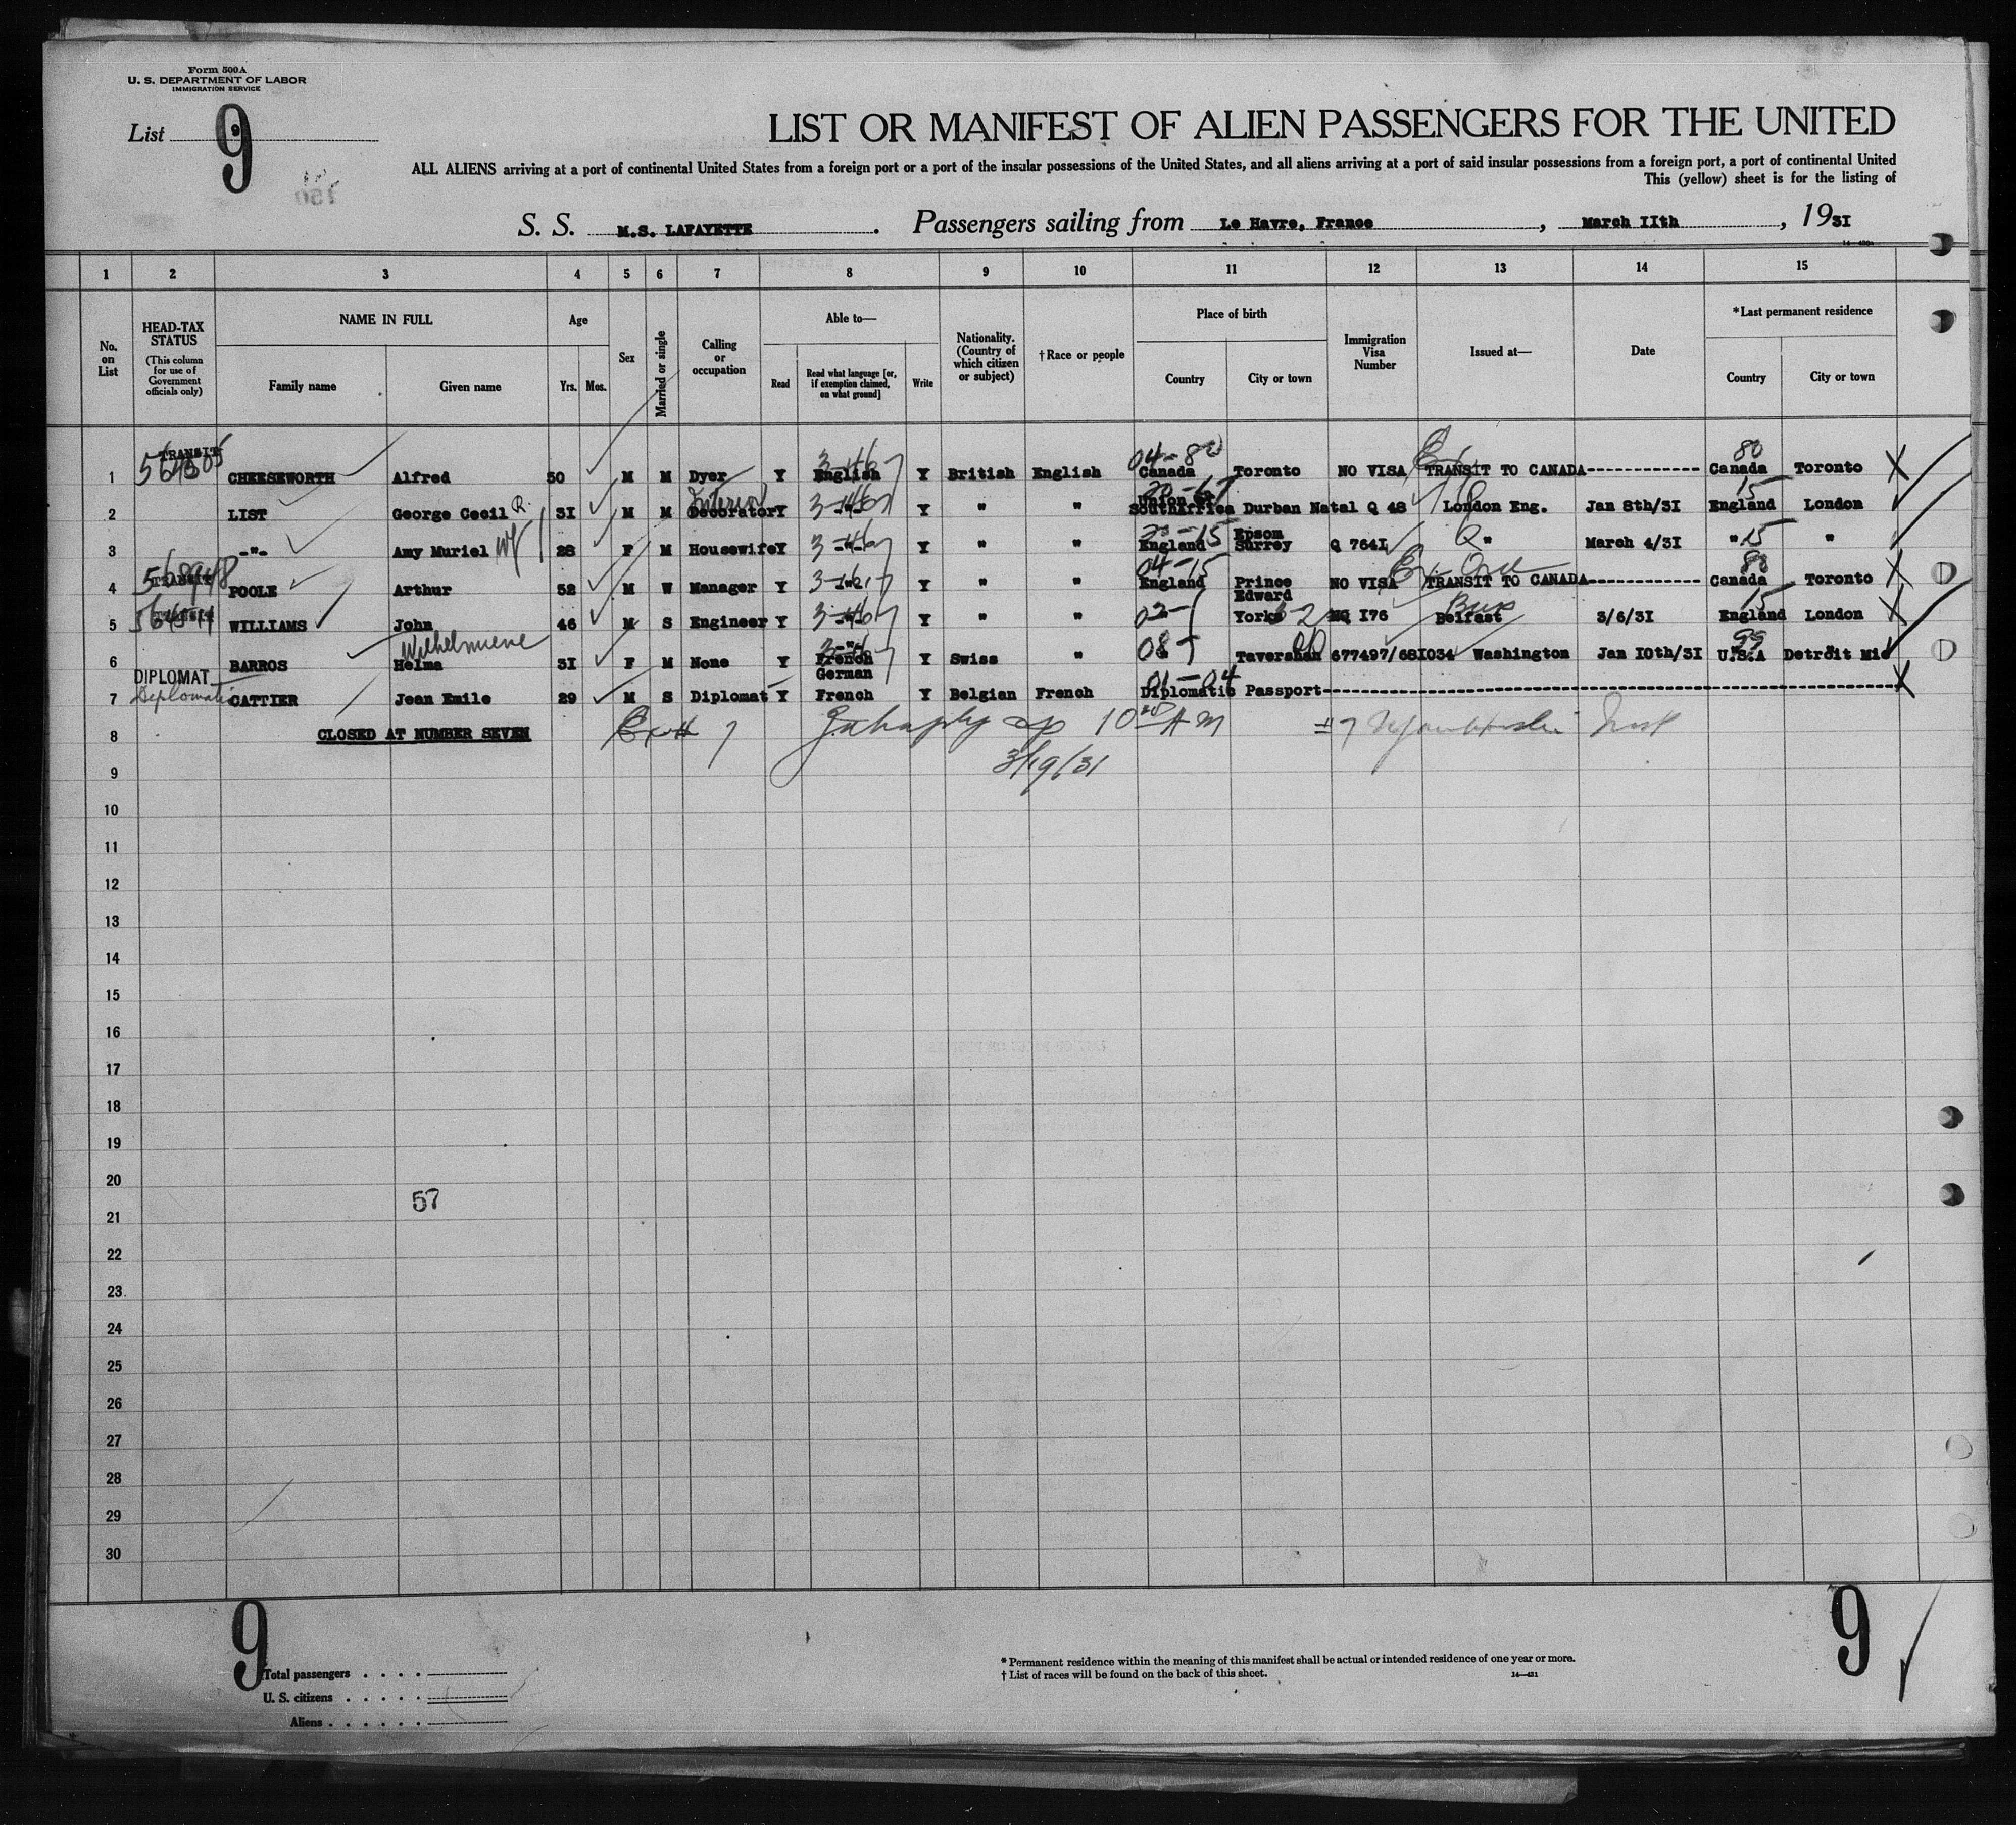 Form 500A
U. S. DEPARTMENT OF LABOR
IMMIGRATION SERVICE
List 9
LIST OR MANIFEST OF ALIEN PASSENGERS FOR THE UNITED
ALL ALIENS arriving at a port of continental United States from a foreign port or a port of the insular possessions of the United States, and all aliens arriving at a port of said insular possessions from a foreign port, a port of continental United
This (yellow) sheet is for the listing of
S. S. M.S. LAFAYETTE. Passengers sailing from Le Havre, France, March IIth, 1931
1 2 3 4 5 6 7 8 9 10 11 12 13 14 15
No. on List
HEAD-TAX STATUS (This column for use of Government officials only)
NAME IN FULL
Family name Given name
Age
Yrs. Mos.
Sex
Married or single
Calling or occupation
Able to—
Read Read what language [or, if exemption claimed, on what ground] Write
Nationality. (Country of which citizen or subject)
† Race or people
Place of birth
Country City or town
Immigration Visa Number
Issued at—
Date
*Last permanent residence
Country City or town
1 TRANSIT CHEESEWORTH Alfred 50 M M Dyer Y English Y British English Canada Toronto NO VISA TRANSIT TO CANADA------------ Canada Toronto
2 LIST George Cecil R. 3I M M Interior Decorator Y -"- Y " " Union of South Africa Durban Natal Q 48 London Eng. Jan 8th/3I England London
3 -"- Amy Muriel 28 F M Housewife Y -"- Y " " England Epsom Surrey Q 764I " March 4/3I " "
4 TRANSIT POOLE Arthur 52 M W Manager Y -"- Y " " England Prince Edward NO VISA TRANSIT TO CANADA------------ Canada Toronto
5 WILLIAMS John 46 M S Engineer Y -"- Y " " " York NQ I76 Belfast 3/6/3I England London
6 BARROS Wilhelmiene Helma 3I F M None Y -"- French German Y Swiss " " 677497/68I034 Washington Jan I0th/3I U.S.A Detroit Mic
7 DIPLOMAT Diplomatic CATTIER Jean Emile 29 M S Diplomat Y French Y Belgian French Diplomatic Passport------------
8 CLOSED AT NUMBER SEVEN 10 AM
9 3/19/31
10
11
12
13
14
15
16
17
18
19
20
57
21
22
23
24
25
26
27
28
29
30
9 9
Total passengers
U. S. citizens
Aliens
* Permanent residence within the meaning of this manifest shall be actual or intended residence of one year or more.
† List of races will be found on the back of this sheet. 14—431